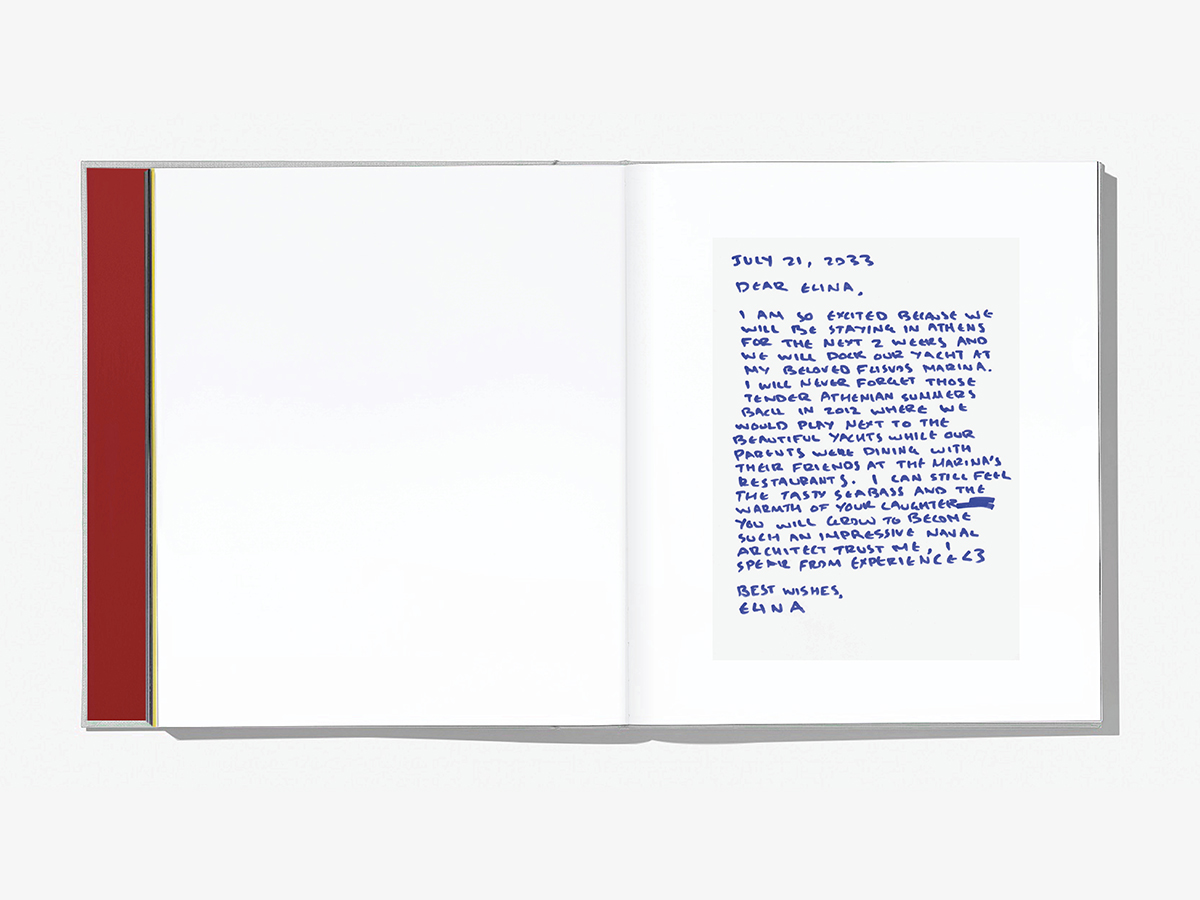 JULY 21, 2033
DEAR ELINA,
I AM SO EXCITED BECAUSE WE
WILL BE STAYING IN ATHENS
FOR THE NEXT 2 WEEKS AND
WE WILL DOCK OUR YACHT AT
MY BELOVED FLISVOS MARINA.
I WILL NEVER FORGET THOSE
TENDER ATHENIAN SUMMERS
BACK IN 2012 WHERE WE
WOULD PLAY NEXT TO THE
BEAUTIFUL YACHTS WHILE OUR
PARENTS WERE DINING WITH
THEIR FRIENDS AT THE MARINA'S
RESTAURANTS. I CAN STILL FEEL
THE TASTY SEABASS AND THE
WARMTH OF YOUR LAUGHTER
YOU WILL GROW TO BECOME
SUCH AN IMPRESSIVE NAVAL
ARCHITECT TRUST ME, I
SPEAK FROM EXPERIENCE <3
BEST WISHES,
ELINA